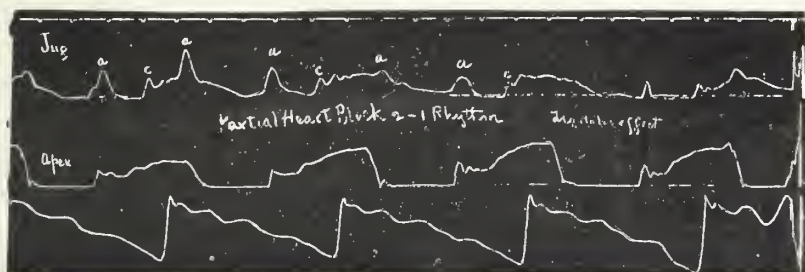 Jug
a c a a c a a c
Partial Heart Block 2-1 Rhythm
effect
apex